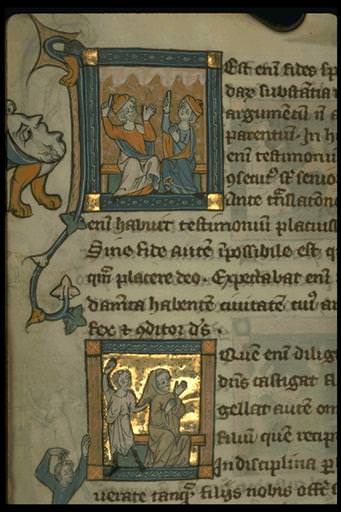 Est enī fides sp
daꝝ substātia
argumētū ñ a
parentiū. In h
enī testimoniū
ꝯsecuti sūt seno
Ante trāslationē
enī habuit testimoniū placuiss
Sine fide autē īpossibile est
qm̄ placere deo. Expectabat enī
damta habentē ciuitatē cuiꝰ ar
fex ⁊ ꝯditor d̄s.
Quē enī dilig
dn̄s castigat fl
gellat autē om
filiū quē recip
In disciplina p
uerate tanqᷓ filijs nobis offe